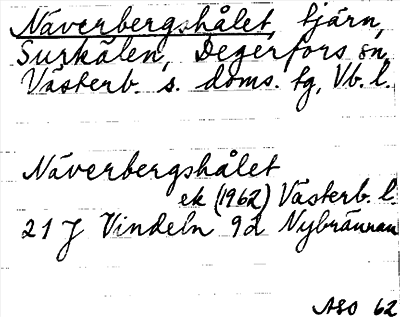 Näverbergshålet, tjärn,
Surkålen, Degerfors sn,
Västerb. s. doms. tg, Vb. l.
Näverbergshålet
ek (1962) Västerb. l.
21 J Vindeln 9d Nybrännan
ASO 62